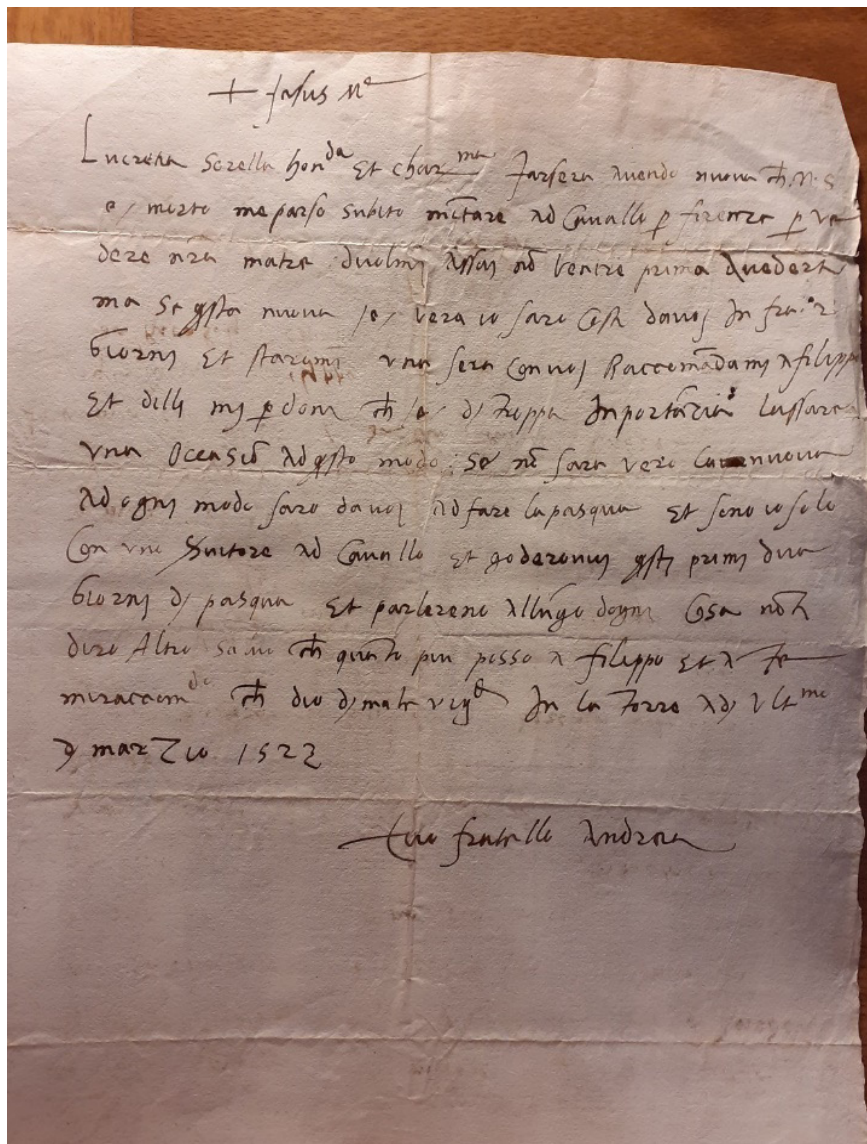 + Jesus Ma
Lucretia Sorella honda Et charma Jarsera Avendo nuova ch N S
e/ morto me parso subito mōtare Ad Cavallo p firenze p ve
dere nra matre duolmj Assaj nō venire prima Avederti
ma Se qsta nuova /e/ vera io saro Costi davoj In fra 2
Giornj Et starommj una sera Convoj Raccomādamj A filippo
Et dilli mj pdoni ch /e/ dj troppa Importātia Lassare
Una Occasiō Ad qsto modo: Se nō sara vero La nuova
Ad ognj modo saro davoj Ad fare la pasqua Et seno io solo
Con uno Ad Cavallo Et goderonvj qstj primj dua
Giornj dj pasqua Et parlereno Allūgo dognj Cosa nōti
diro Altro Salvo ch quāto piu posso A filippo Et A Te
miraccomdo ch dio dj male In la Torre Adj Ultmo
dj marzio 1522
tuo fratello Andrea